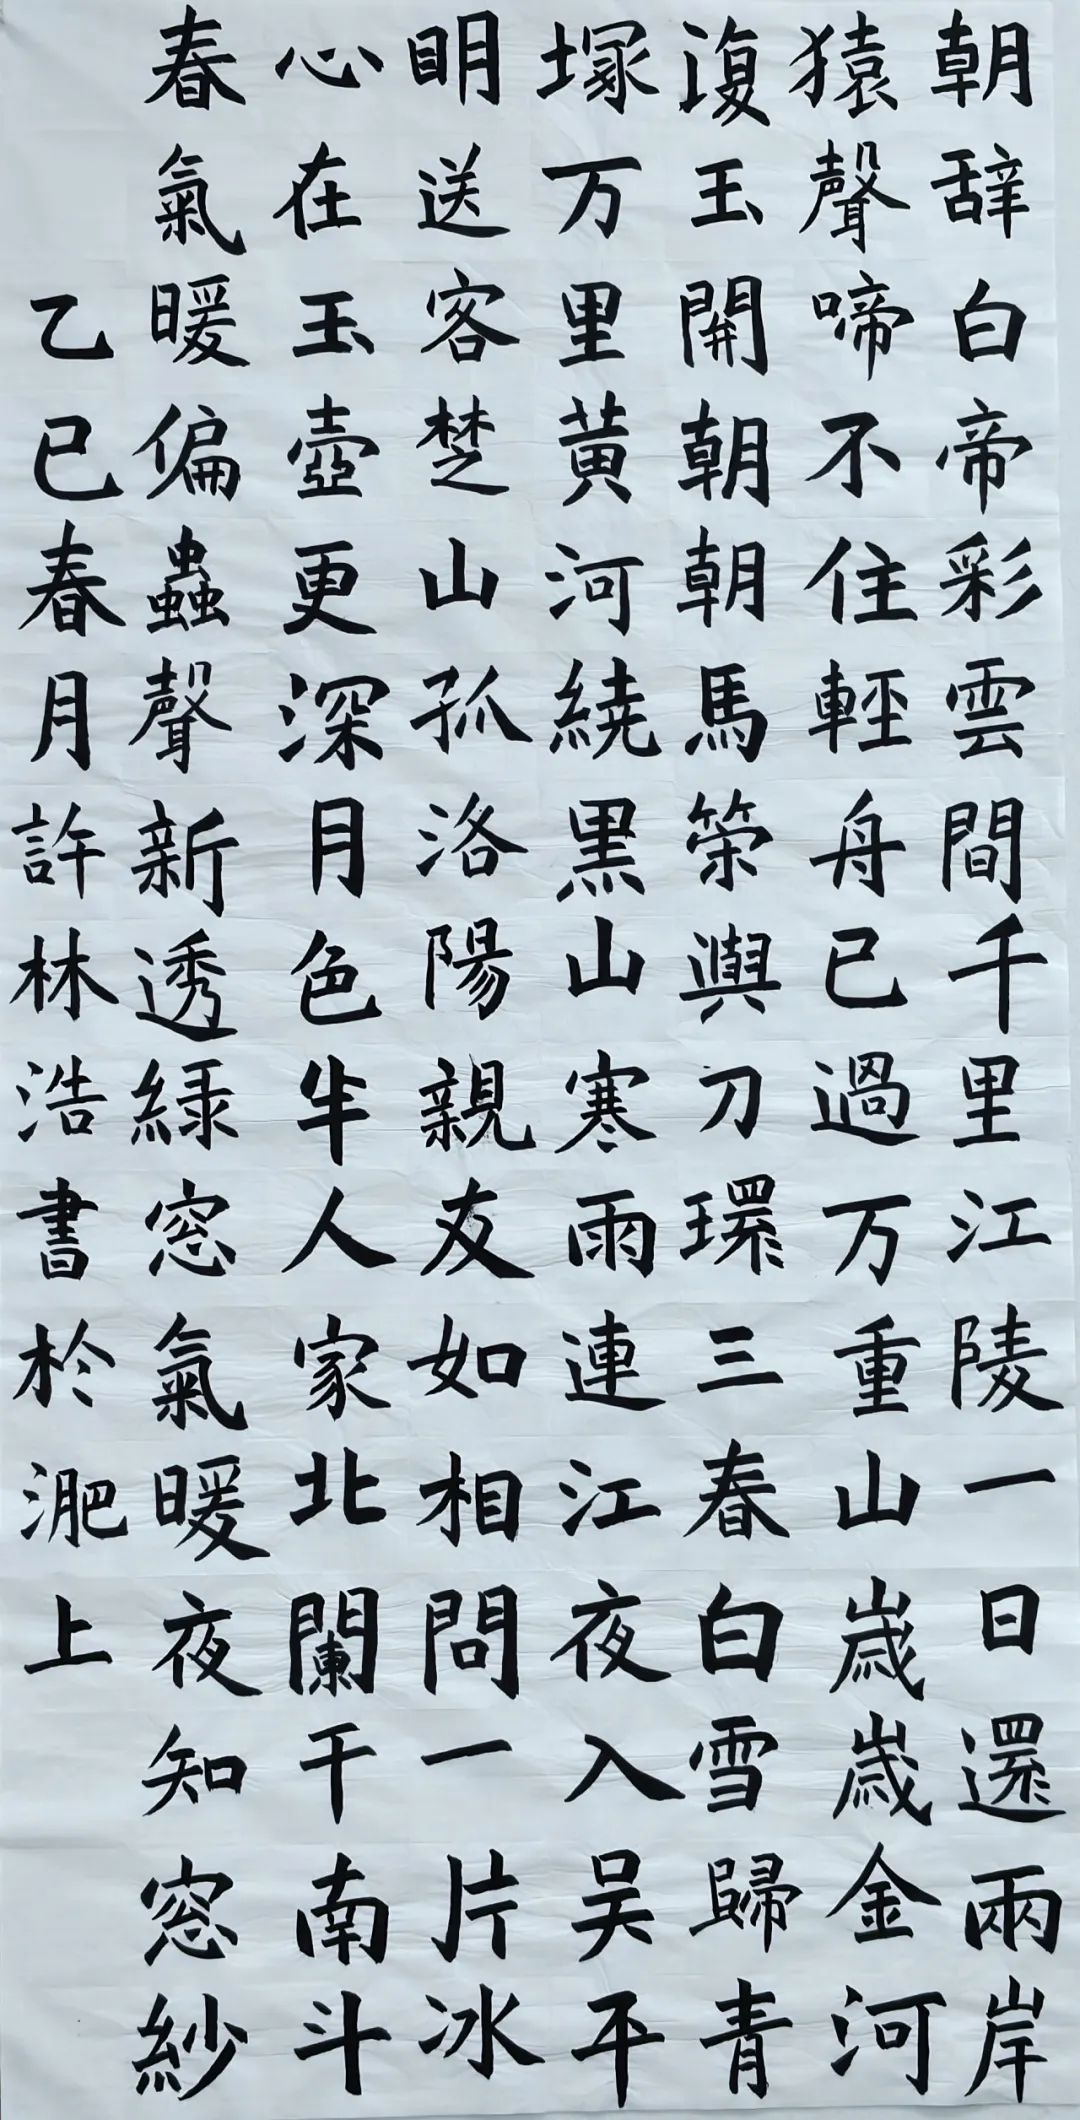 朝辞白帝彩雲間千里江陵一日還兩岸
猿聲啼不住輕舟已過万重山歲歲金河
復玉開朝朝馬策與刀環三春白雪歸青
塚万里黃河繞黑山寒雨連江夜入吴平
明送客楚山孤洛陽親友如相問一片冰
心在玉壺更深月色半人家北闌干南斗
春氣暖偏蟲聲新透緑窓氣暖夜知窓紗
乙巳春月許林浩書於淝上